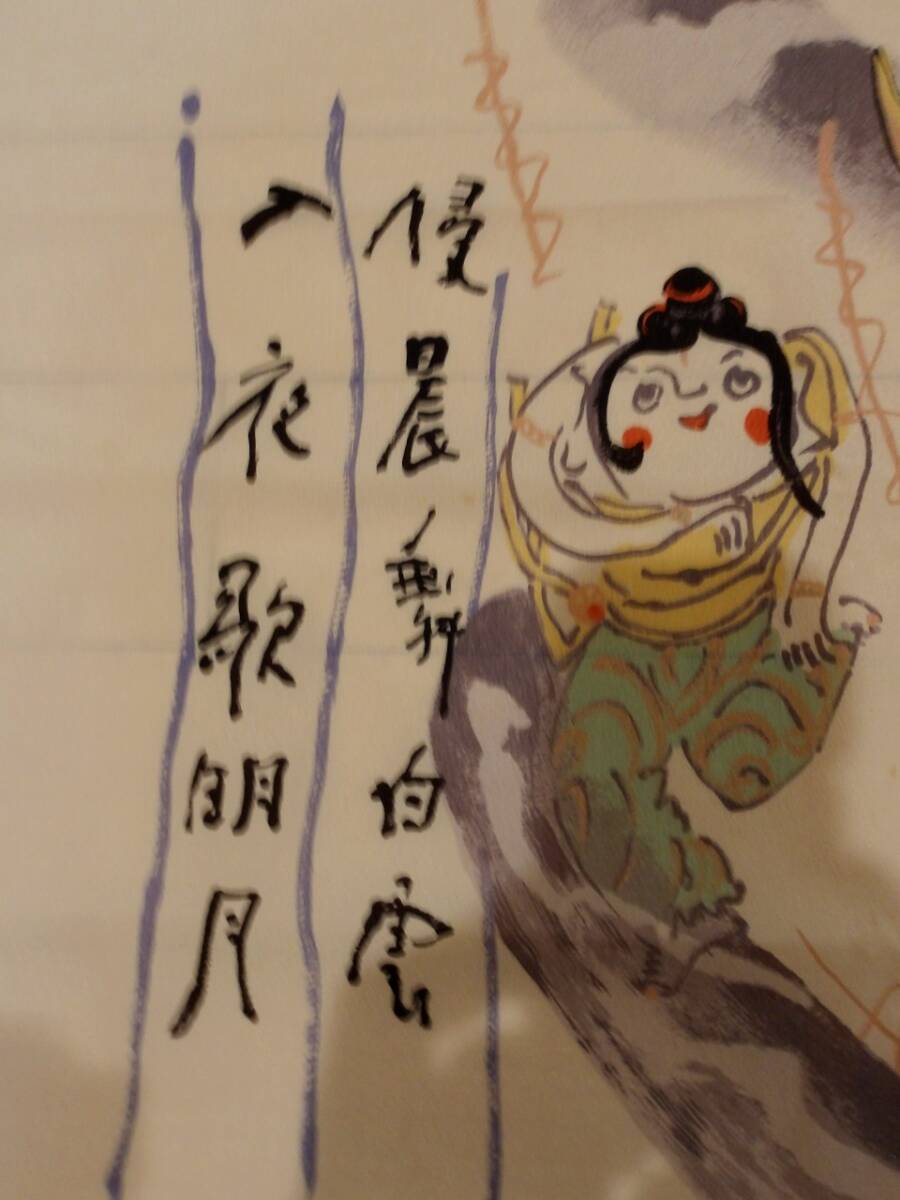 侵晨舞白雲
入夜歌明月